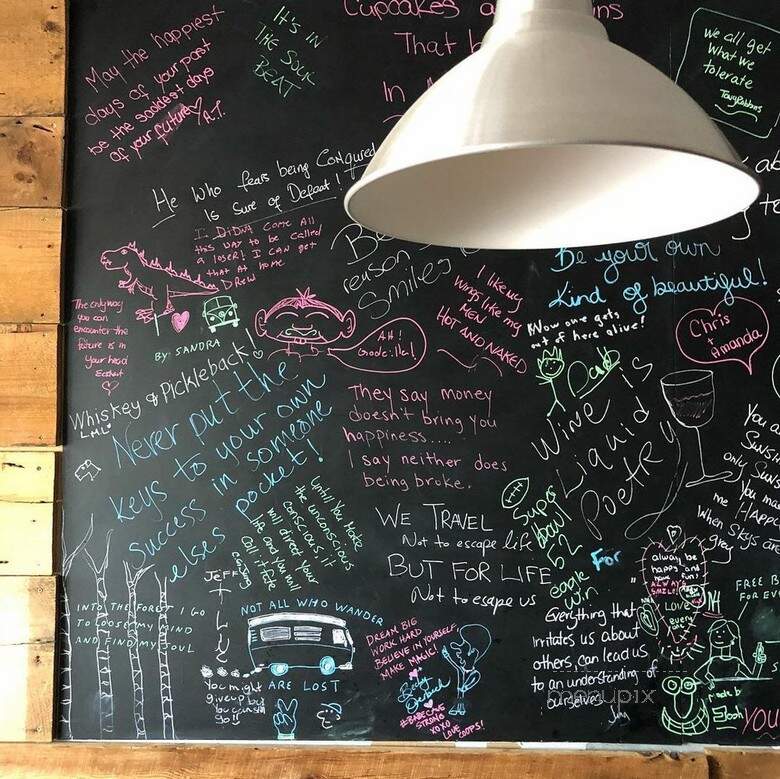 Cupcakes
That
In
May the happiest
days of your past
be the saddest days
of your future
A.P.
It's IN
THE SOUR
BEAT
We all get
what we
tolerate
Tony Robbins
He who fears being Conqured
Is Sure of Defeat!
I DiDNt Come All
this WAY to be called
a loser! I CAN get
that At home
Drew
reason
Smiles
Be your own
Kind of beautiful!
I like my
Wings like my
MEN
HOT AND NAKED
Wow one gets
out of here alive!
Chris
+
Amanda
The only way
you can
encounter the
future is in
your head
BY: SANDRA
AH!
Whiskey & Pickleback!
LML
Never put the
keys to your own
success in someone
elses pocket!
They say money
doesn't bring you
happiness....
I say neither does
being broke.
Wine is
Liquid
Poetry
Super
bowl
52
eagle
win
For
You
only
me HAPPY
When Skys are
grey
Until You Make
the unconscious
conscious, it
will direct your
life and you will
call it fate
WE TRAVEL
Not to escape life
BUT FOR LIFE
Not to escape us
always be
happy and
have fun!
ALWAYS
SMILE!
LOVE
every
INTO THE FOREST I GO
TO LOOSE MY MIND
AND FIND MY SOUL
Jeff
NOT ALL WHO WANDER
ARE LOST
You might
give up but
DREAM BIG
WORK HARD
BELIEVE IN YOURSELF
MAKE MAGIC!
Becky
STRONG
XOXO
LOVE
Everything that
irritates us about
others, can lead us
to an understanding of
ourselves
Jung
FREE
FOR
menupix
made b
YOU